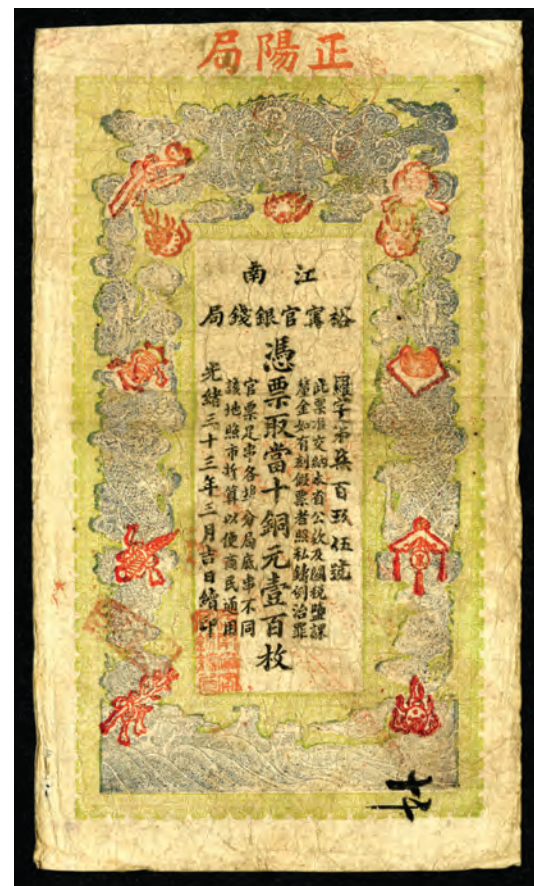 正陽局
江南
裕寧官銀錢局
字第百玖伍號
此票准交納本省公款及關稅鹽課
釐金如有刻假票者照私鑄例治罪
憑票取當十銅元壹百枚
官票足串各埠分局底串不同
該地照市折算以便商民通用
光緒三十三年三月吉日續印